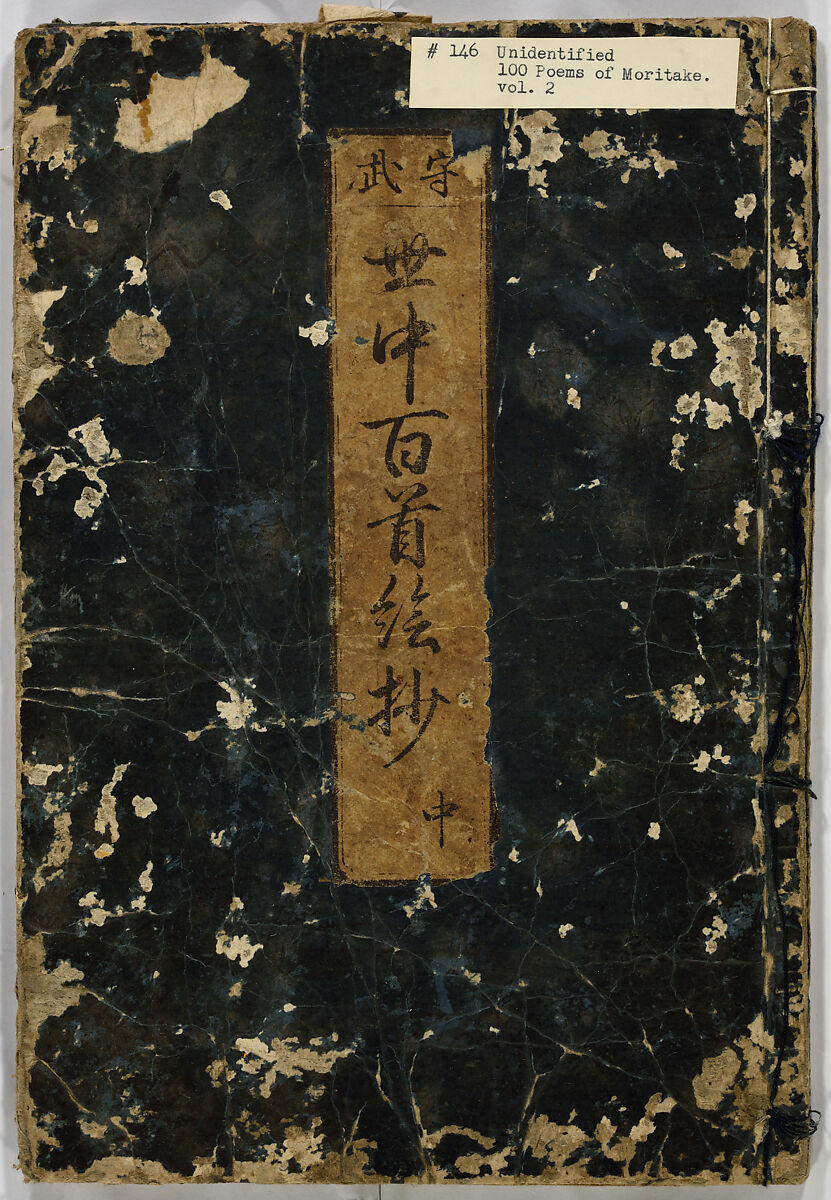 # 146 Unidentified
100 Poems of Moritake.
vol. 2
守武
世中百首絵抄
中